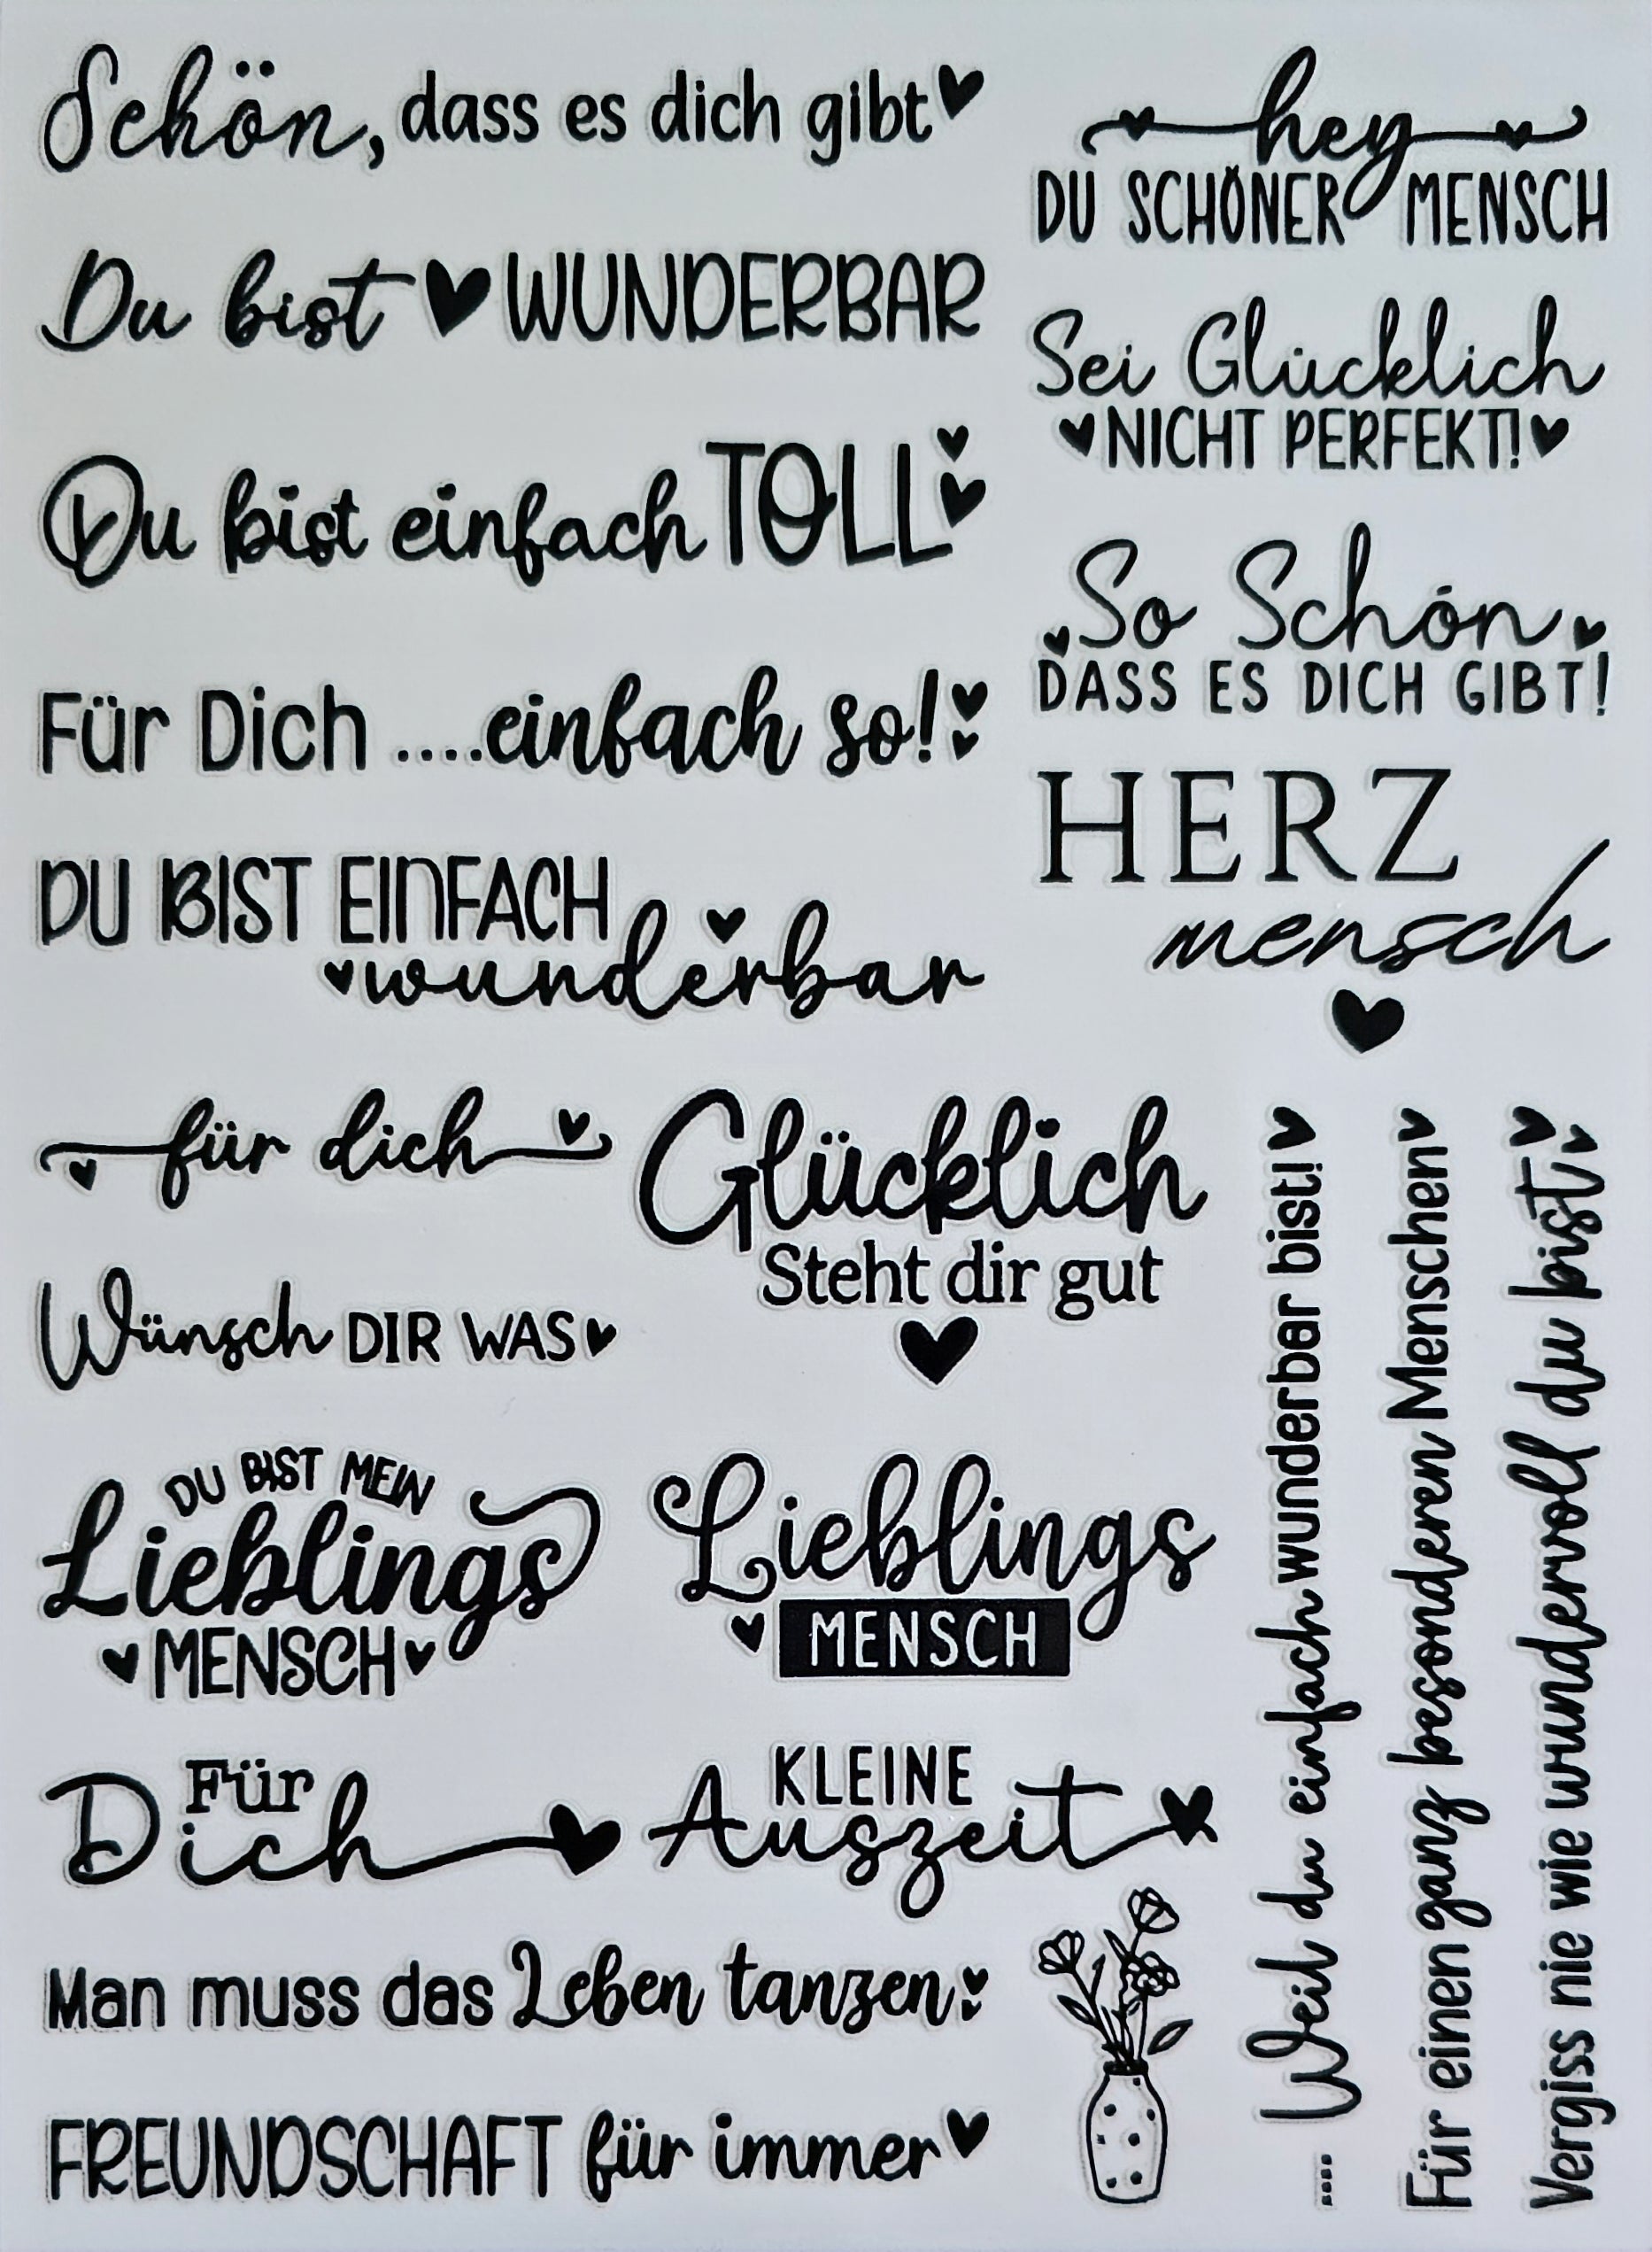 Schön, dass es dich gibt
Du bist WUNDERBAR
Du bist einfach TOLL
Für Dich ....einfach so!
DU BIST EINFACH
wunderbar
für dich
Wünsch DIR WAS
DU BIST MEIN
Lieblings
MENSCH
Für
Dich
Man muss das Leben tanzen
FREUNDSCHAFT für immer
hey
DU SCHÖNER MENSCH
Sei Glücklich
NICHT PERFEKT!
So Schön
DASS ES DICH GIBT!
HERZ
mensch
Glücklich
Steht dir gut
Lieblings
MENSCH
KLEINE
Auszeit
.... Weil du einfach wunderbar bist!
Für einen ganz besonderen Menschen
Vergiss nie wie wundervoll du bist